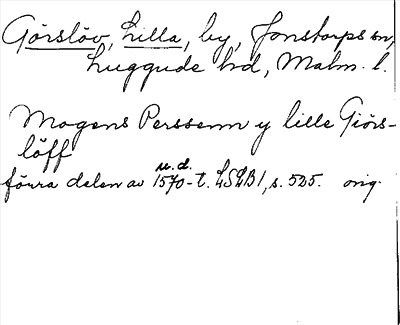 Görslöv, Lilla, by, Jonstorps sn,
Luggude hd, Malm. l.
Mogens Perssenn y lille Giörs-
löff
u.d.
förra delen av 1570-t. LSLB 1, s. 525. orig.